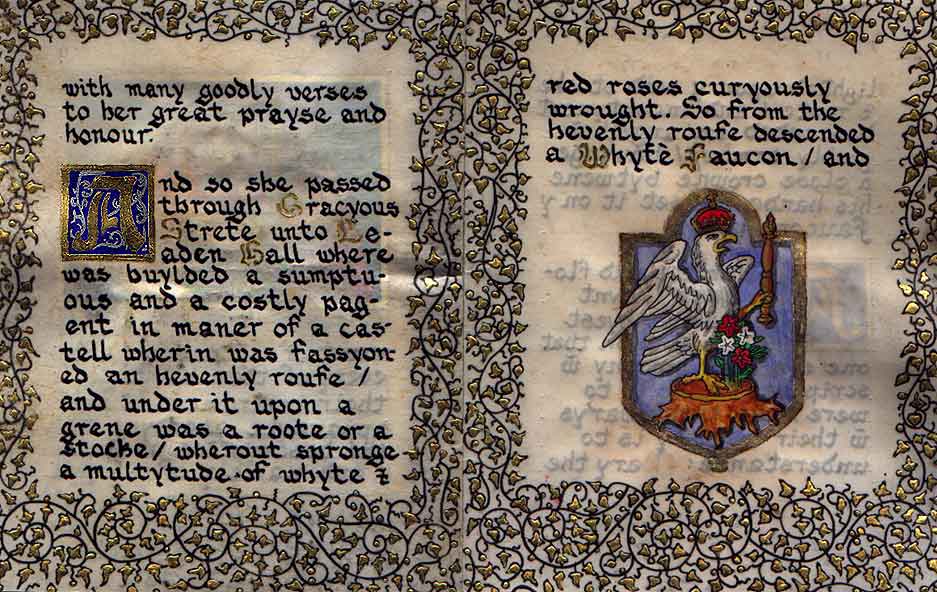 with many goodly verses
to her great prayse and
honour.
And so she passed
through Gracyous
Strete unto Le-
aden Hall where
was buylded a sumptu-
ous and a costly pag-
ent in maner of a cas-
tell wherin was fassyon-
ed an hevenly roufe /
and under it upon a
grene was a roote or a
stocke / wherout spronge
a multytude of whyte &
red roses curyously
wrought. So from the
hevenly roufe descended
a Whyte Faucon / and